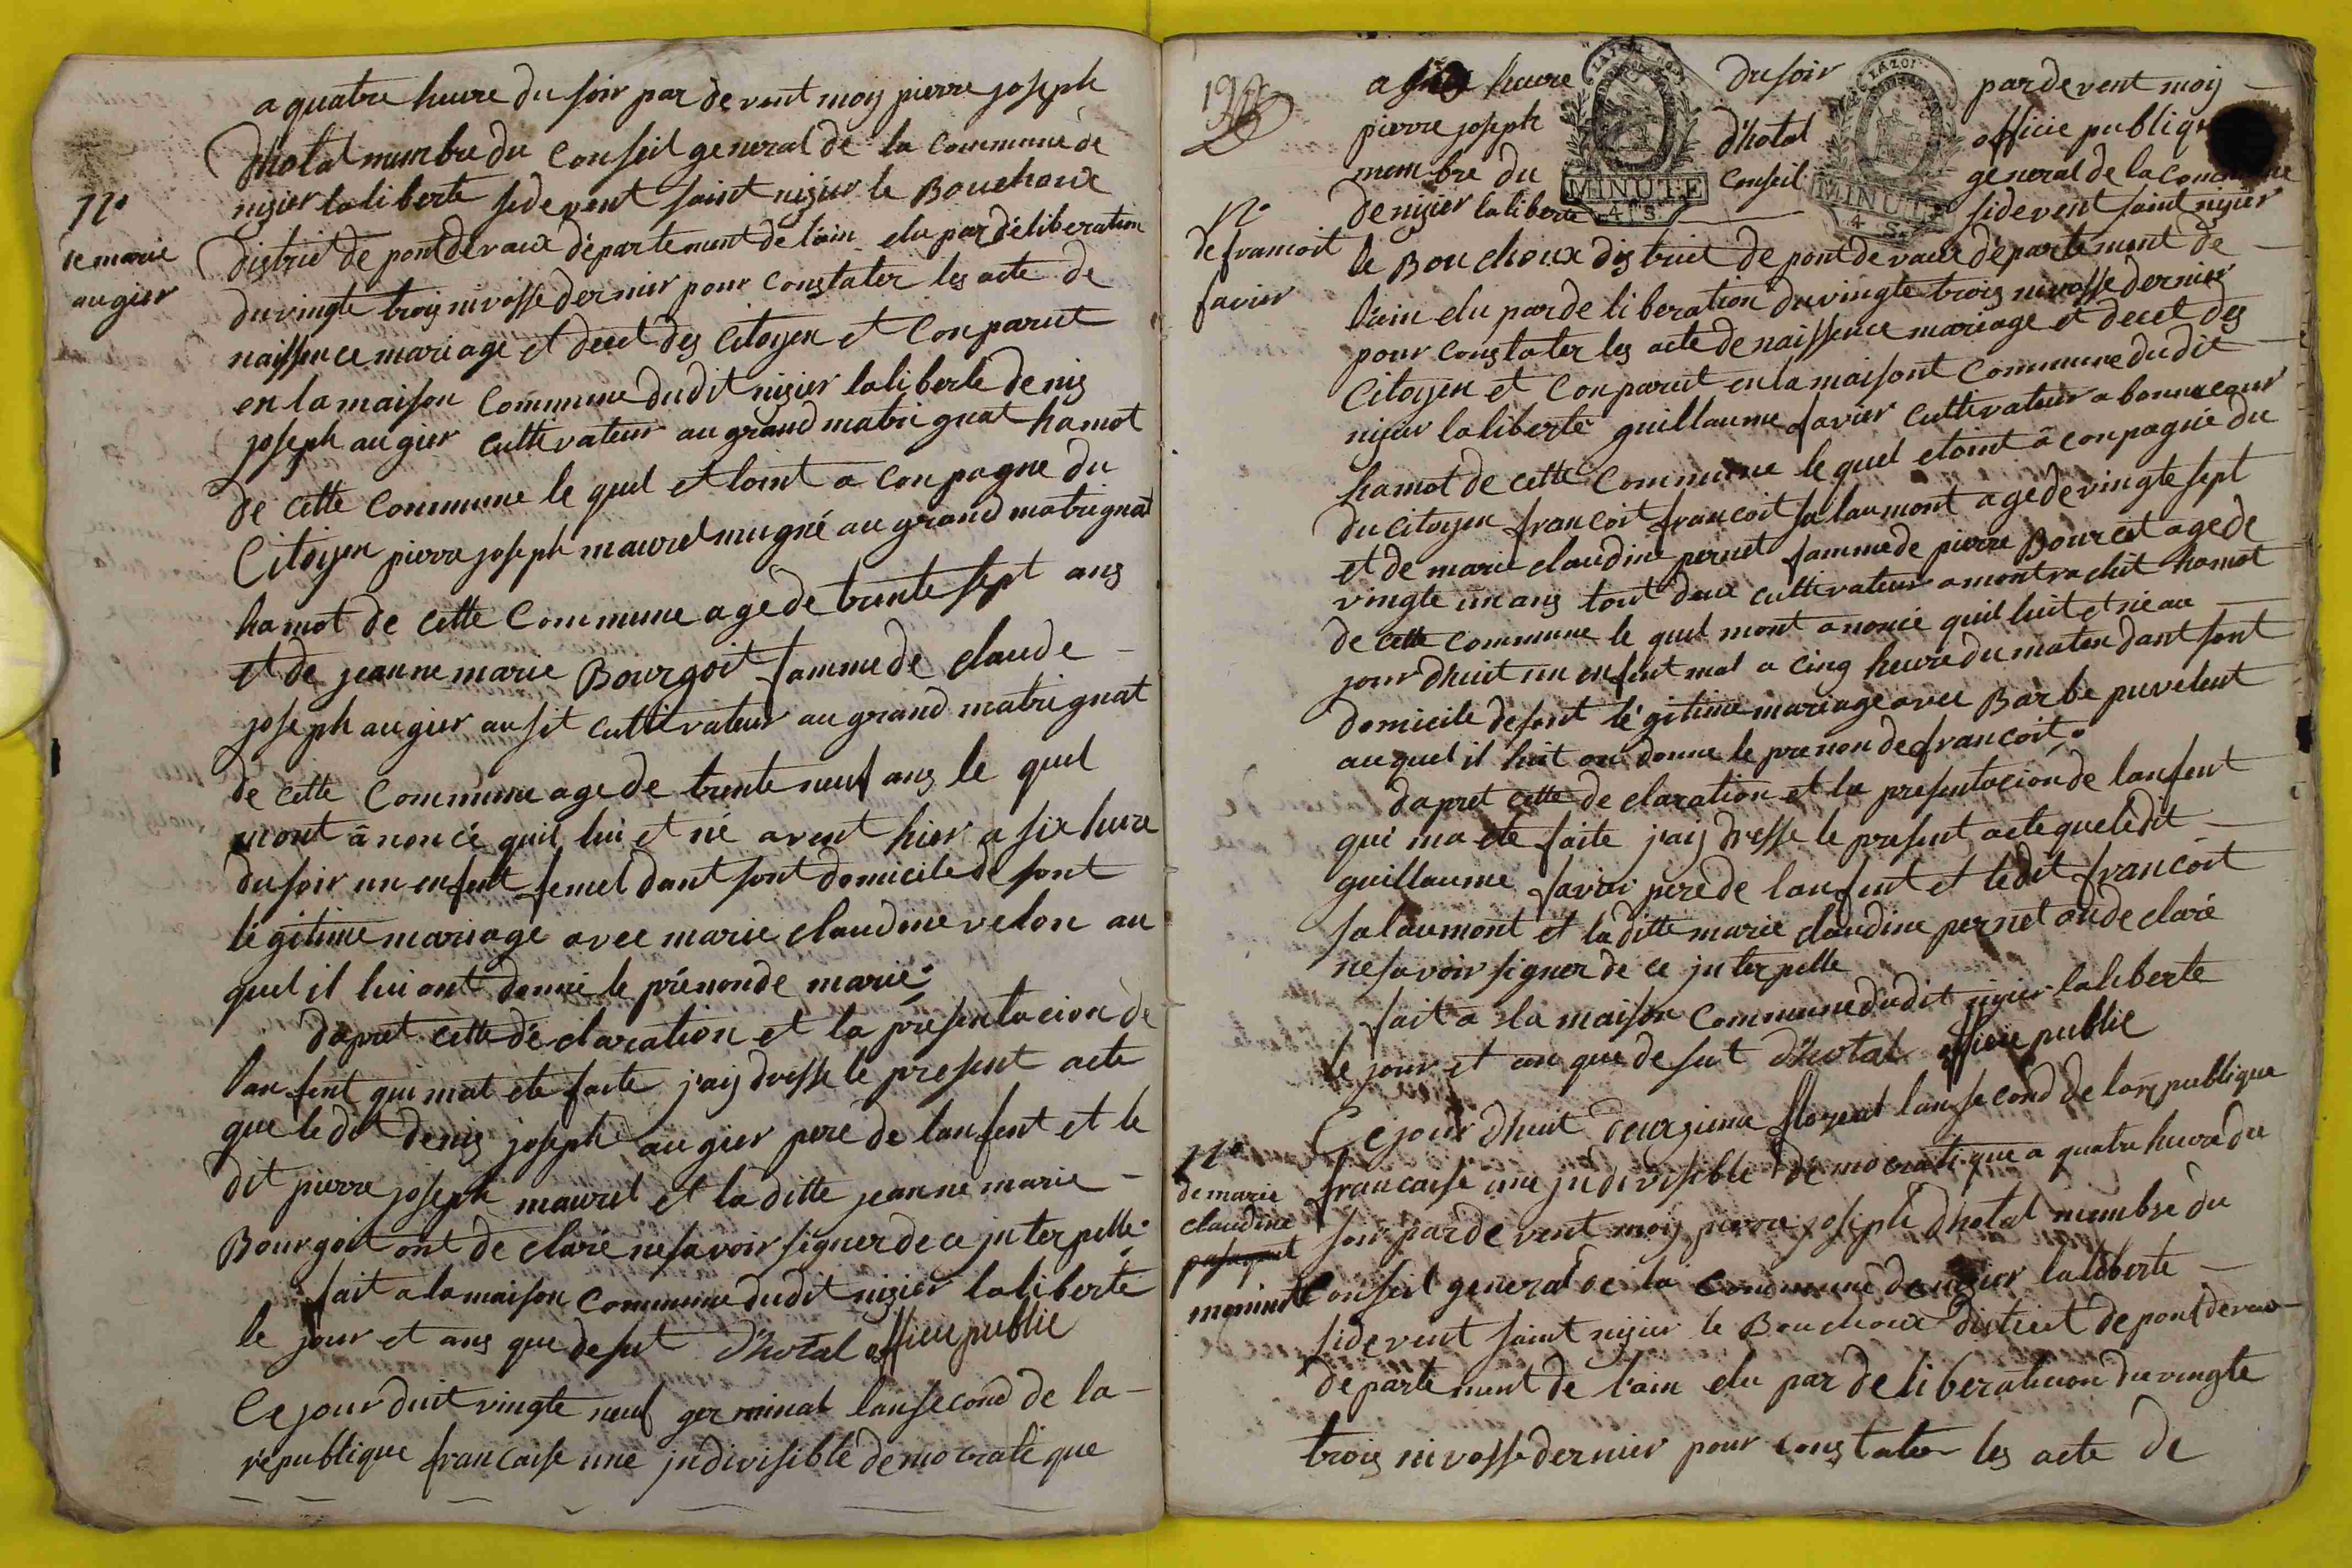 a quatre heure du soir par devent moy pierre joseph
Dhotal mumbre du Conseil general de la commune de
nizier laliberte sidevent saint nizier le Bouchoux
district de pontdevaux département de l'ain elu par déliberation
du vingte trois nivosse dernier pour constater les acte de
naissence mariage et decet des citoyen et Conparut
en la maison Commune dudit nizier laliberté denis
joseph augier cultivateur au grand matrignat hamot
de cette Commune le quel etoint a conpagne du
Citoyen pierre joseph maurel mugné au grand matrignat
hamot de cette Commune age de trente sept ans
et de jeanne marie Bourgoit famme de claude
joseph augier ausit cultivateur au grand matrignat
de cette Commune age de trente neuf ans le quel
mont ànoncé quil lui et né avent hier a six hure
du soir un enfent femel dant sont domicile de sont
légitime mariage avec marie claudine velon au
quel il lui ont donné le prénon de marie.
dapret cette déclaration et la présentacion de
lanfent qui mat ete faite j'aij dresse le present acte
que ledit denis joseph augier pere de lanfent et le
dit pierre joseph maurel et la ditte jeanne marie
Bourgoit ont de claré ne savoir signer de ce jnterpellé.
fait a la maison Commune dudit nizier laliberté
le jour et ans que desut Dhotal officie public
Ce jour duit vingte neuf germinal lan second de la
république francaise une jndivisible démocratique
n°
de marie
augier
19
a heure du soir par devent moy
pierre joseph d'hotal officie publique
membre du Conseil general de la commune
de nizier laliberte sidevent saint nizier
MINUTE
4 S
MINUTE
4 S.
le Bouchoux district de pontdevaux département de
l'ain elu par deliberation du vingte trois nivosse dernier
pour constater les acte de naissence mariage et decet des
Citoyen et Conparut en la maisont Commune dudit
nizier laliberté guillaume favier cultivateur a bonnecour
hamot de cette Commune le quel etoint à conpagnie du
du citoyen francoit francoit salaumont age de vingte sept
et de marie claudine pernet famme de pierre Bourcet age de
vingte un ans tout deux cultivateur a montrachit hamot
de cette commune le quel mont anoncé quil luit et né au
jour dhuit un enfent mal a cinq heure du maten dant sont
domicile de sont légitime mariage avec Barbe puvelent
auquel il luit ont donné le prenon de francoit.
dapret cette declaration et la presentacion de lanfent
qui ma ete faite j'aij dresse le present acte que ledit
guillaume favier pere de lanfent et ledit francoit
salaumont et la ditte marie claudine pernet on de claré
ne savoir signer de ce jnterpelle
fait a la maison Commune dudit nizier laliberte
le jour et an que desut Dhotal officie public
n°
de francoit
favier
Ce jour d'huit deuxzieme floreal lan second de la republique
francaise une jndivisible démocratique a quatre heure du
soir par devent moy pierre joseph dhotal mumbre du
Conseil general de la Commune de nizier laliberte
sidevent saint nizier le Bouchoux district de pontdevaux
departement de l'ain elu par deliberation du vingte
trois nivosse dernier pour constater les acte de
n°
de marie
claudine
maninet